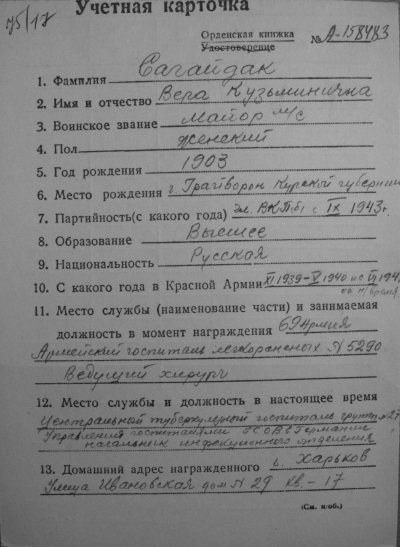 75/17
Учетная карточка
Орденская книжка
Удостоверение № А-158483
1. Фамилия Сагайдак
2. Имя и отчество Вера Кузьминична
3. Воинское звание майор м/с
4. Пол женский
5. Год рождения 1903
6. Место рождения г. Грайворон Курской губернии
7. Партийность (с какого года) чл. ВКП(б) с IX 1943 г.
8. Образование Высшее
9. Национальность Русская
10. С какого года в Красной Армии XI 1939-V 1940 и с VI 194
12. Место службы и должность в настоящее время
11. Место службы (наименование части) и занимаемая
должность в момент награждения 69 Армия
Армейский госпиталь легкораненых № 5290
Ведущий хирург
Центральный туберкулезный госпиталь группы
Управления госпиталями ГСОВ в Германии
начальник инфекционного отделения
13. Домашний адрес награжденного г. Харьков
Улица Ивановская дом № 29 кв.- 17
(См. н/об.)